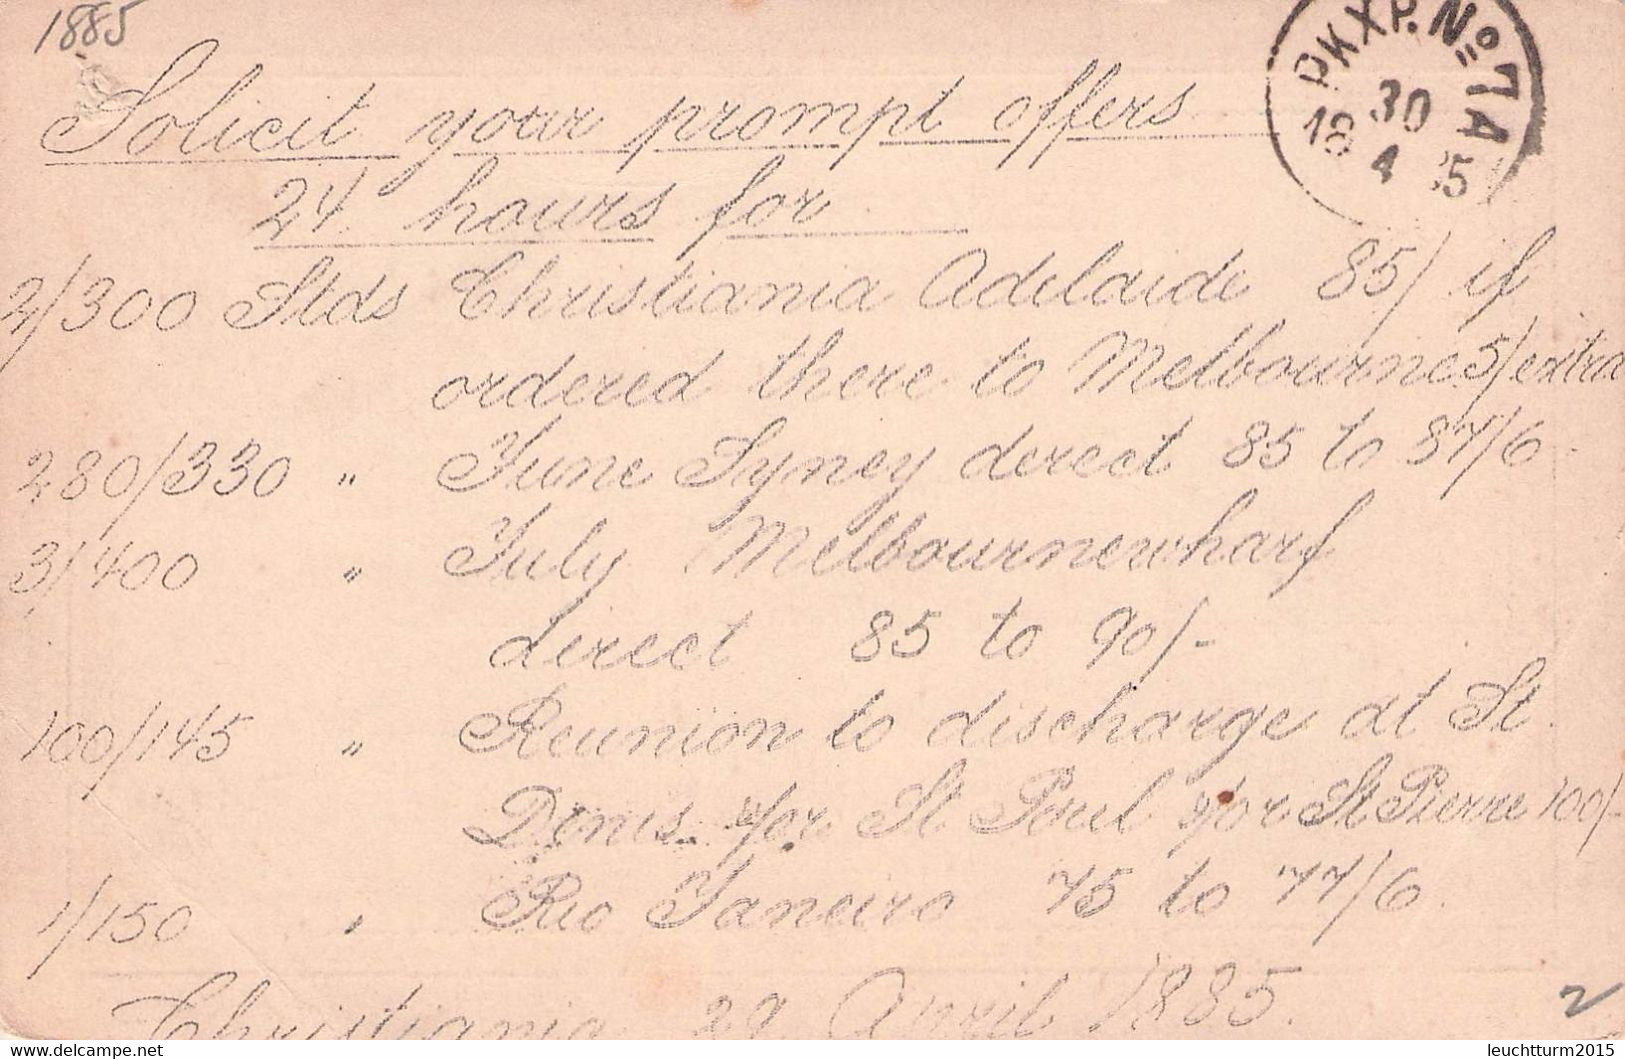 1885
PKXP. No 7A
30
18 4 5
Solicit your prompt offers
24 hours for
2/300 Stds Christiania Adelaide 85/ if
ordered there to Melbourne 5/ extra
280/330 " June Syney direct 85 to 87/6
3/400 " July Melbournewharf
direct 85 to 90/-
100/145 " Reunion to discharge at St.
Denis &/or St Poul &/or St Pierre 100/-
1/150 " Rio Janeiro 75 to 77/6.
Christiania 29 April 1885.
2
delcampe.net
leuchtturm2015